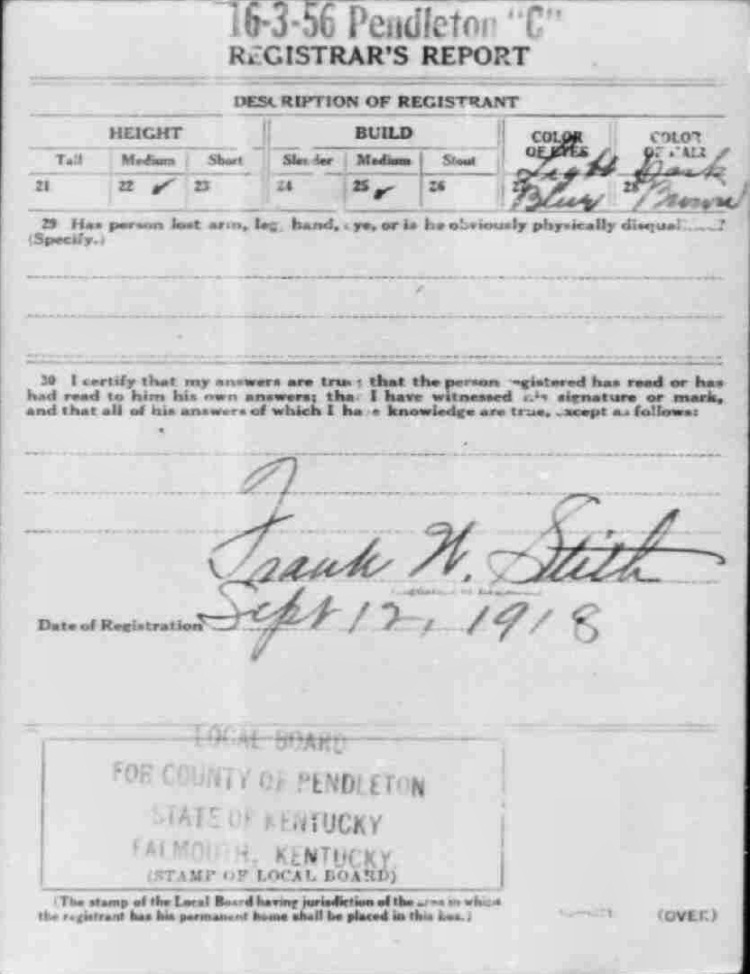 16-3-56 Pendleton "C"
REGISTRAR'S REPORT
DESCRIPTION OF REGISTRANT
HEIGHT BUILD COLOR OF EYES COLOR OF HAIR
Tall Medium Short Slender Medium Stout
21 22 ✓ 23 24 25 ✓ 26 27 Light Blue 28 Dark Brown
29 Has person lost arm, leg, hand, eye, or is he obviously physically disqualified?
(Specify.)
30 I certify that my answers are true; that the person registered has read or has
had read to him his own answers; that I have witnessed his signature or mark,
and that all of his answers of which I have knowledge are true, except as follows:
Frank W. Stith
Date of Registration Sept 12, 1918
LOCAL BOARD
FOR COUNTY OF PENDLETON
STATE OF KENTUCKY
FALMOUTH, KENTUCKY
(STAMP OF LOCAL BOARD)
(The stamp of the Local Board having jurisdiction of the area in which
the registrant has his permanent home shall be placed in this box.)
(OVER)